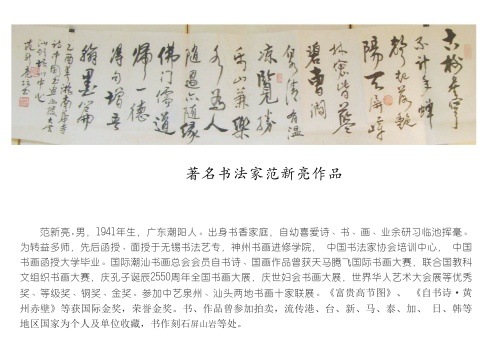 古榕参穹
不计年蝉
阳天屏峰
碧
清有温
凉览胜
山兼乐
人
随遇亦随缘
佛门儒道
归一德
得句增吾
翰墨篇
著名书法家范新亮作品
范新亮，男，1941年生，广东潮阳人。出身书香家庭，自幼喜爱诗、书、画、业余研习临池挥毫。
为转益多师，先后函授、面授于无锡书法艺专，神州书画进修学院， 中国书法家协会培训中心， 中国
书画函授大学毕业。国际潮汕书画总会会员自书诗、国画作品曾获天马腾飞国际书画大赛，联合国教科
文组织书画大赛，庆孔子诞辰2550周年全国书画大展，庆世妇会书画大展，世界华人艺术大会展等优秀
奖、等级奖、铜奖、金奖。参加中艺泉州、汕头两地书画十家联展。《富贵高节图》、 《自书诗·黄
州赤壁》等获国际金奖，荣誉金奖。书、作品曾参加拍卖，流传港、台、新、马、泰、加、 日、韩等
地区国家为个人及单位收藏，书作刻石屏山岩等处。